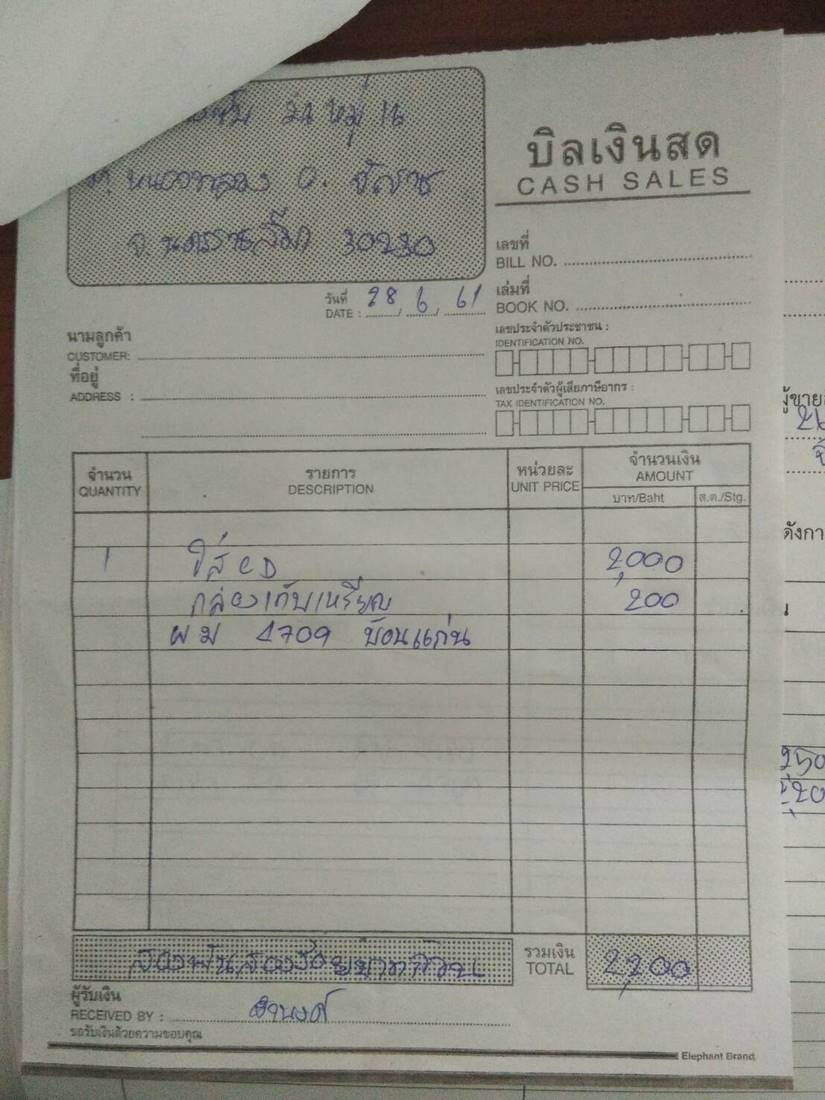 24 หมู่ 16
ต. หนองหลวง อ. จักราช
จ. นครราชสีมา 30230
บิลเงินสด
CASH SALES
เลขที่
BILL NO.
วันที่
DATE : 28 / 6 / 61
เล่มที่
BOOK NO.
นามลูกค้า
CUSTOMER:
เลขประจำตัวประชาชน :
IDENTIFICATION NO.
ที่อยู่
ADDRESS :
เลขประจำตัวผู้เสียภาษีอากร :
TAX IDENTIFICATION NO.
จำนวน รายการ หน่วยละ จำนวนเงิน
QUANTITY DESCRIPTION UNIT PRICE AMOUNT
บาท/Baht ส.ต./Stg.
1 ใส่ CD 2,000
กล่องเก็บเหรียญ 200
ผม 4709 ขอนแก่น
สองพันสองร้อยบาทถ้วน รวมเงิน 2,200
TOTAL
ผู้รับเงิน
RECEIVED BY :
ขอรับเงินด้วยความขอบคุณ
Elephant Brand
ผู้ขาย
ดังกา